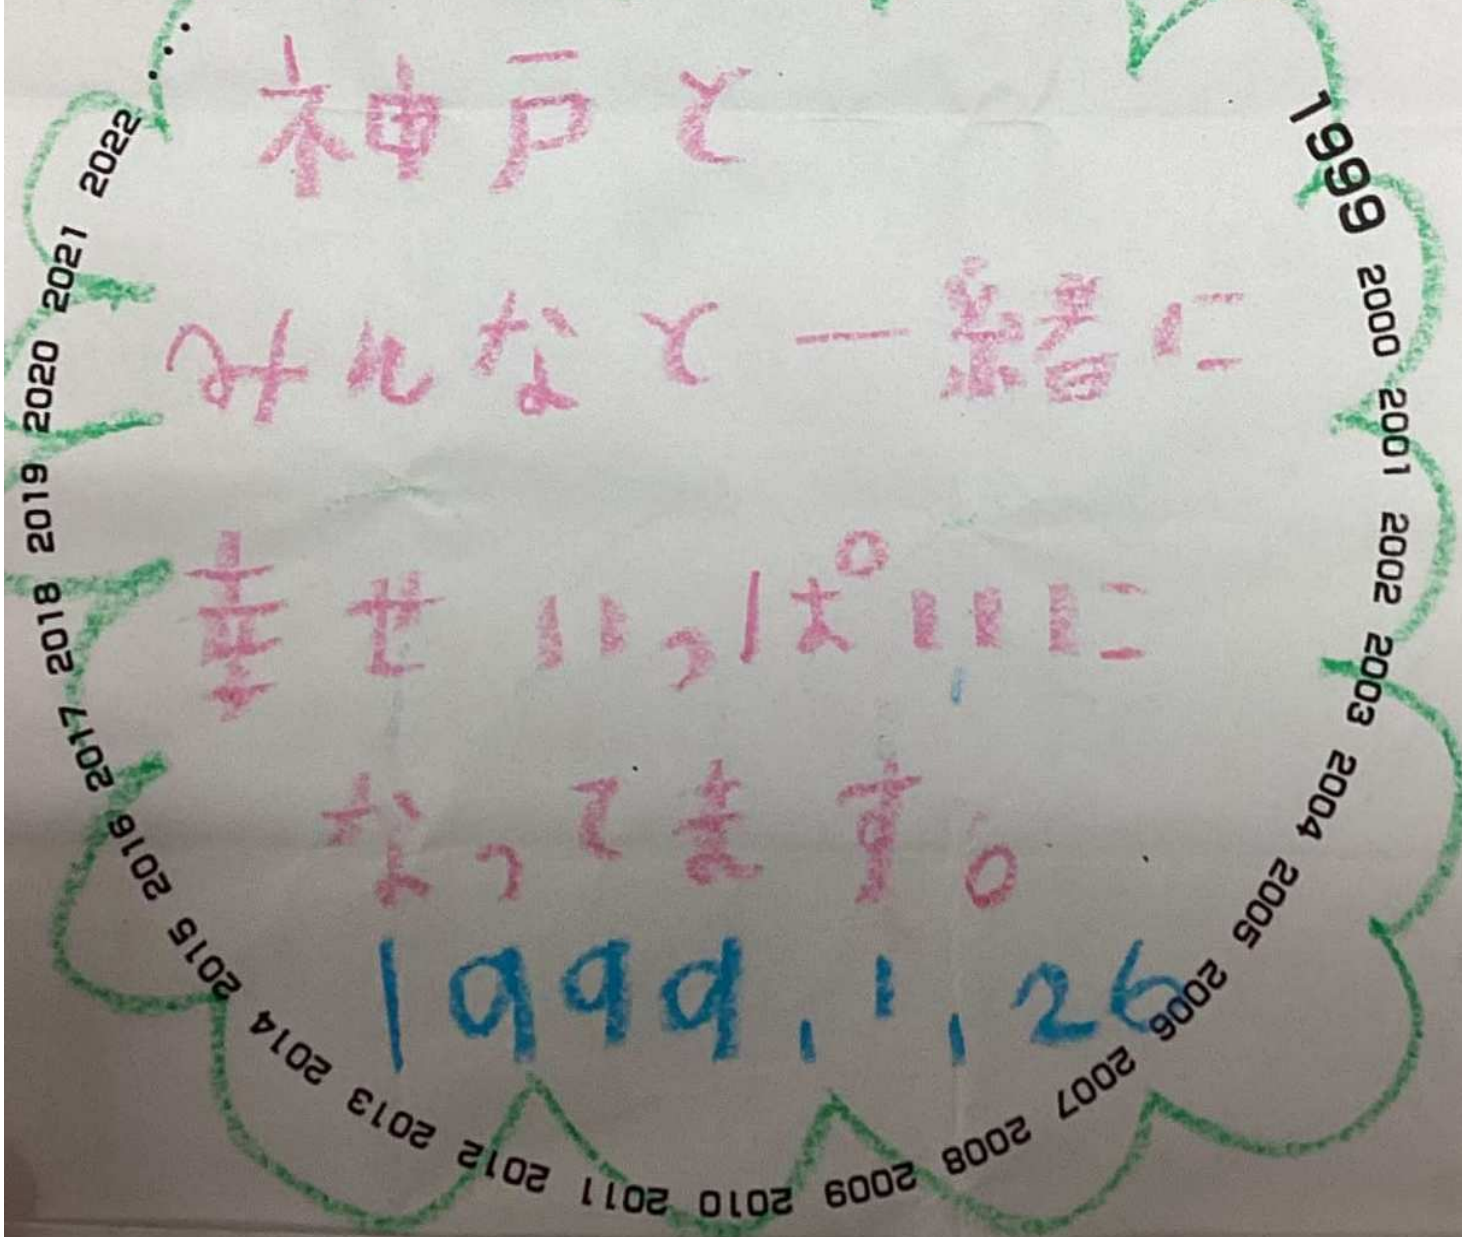 神戸と
みんなと一緒に
幸せいっぱいに
なってます。
1999.1.26
1999 2000 2001 2002 2003 2004 2005 2006 2007 2008 2009 2010 2011 2012 2013 2014 2015 2016 2017 2018 2019 2020 2021 2022 ....